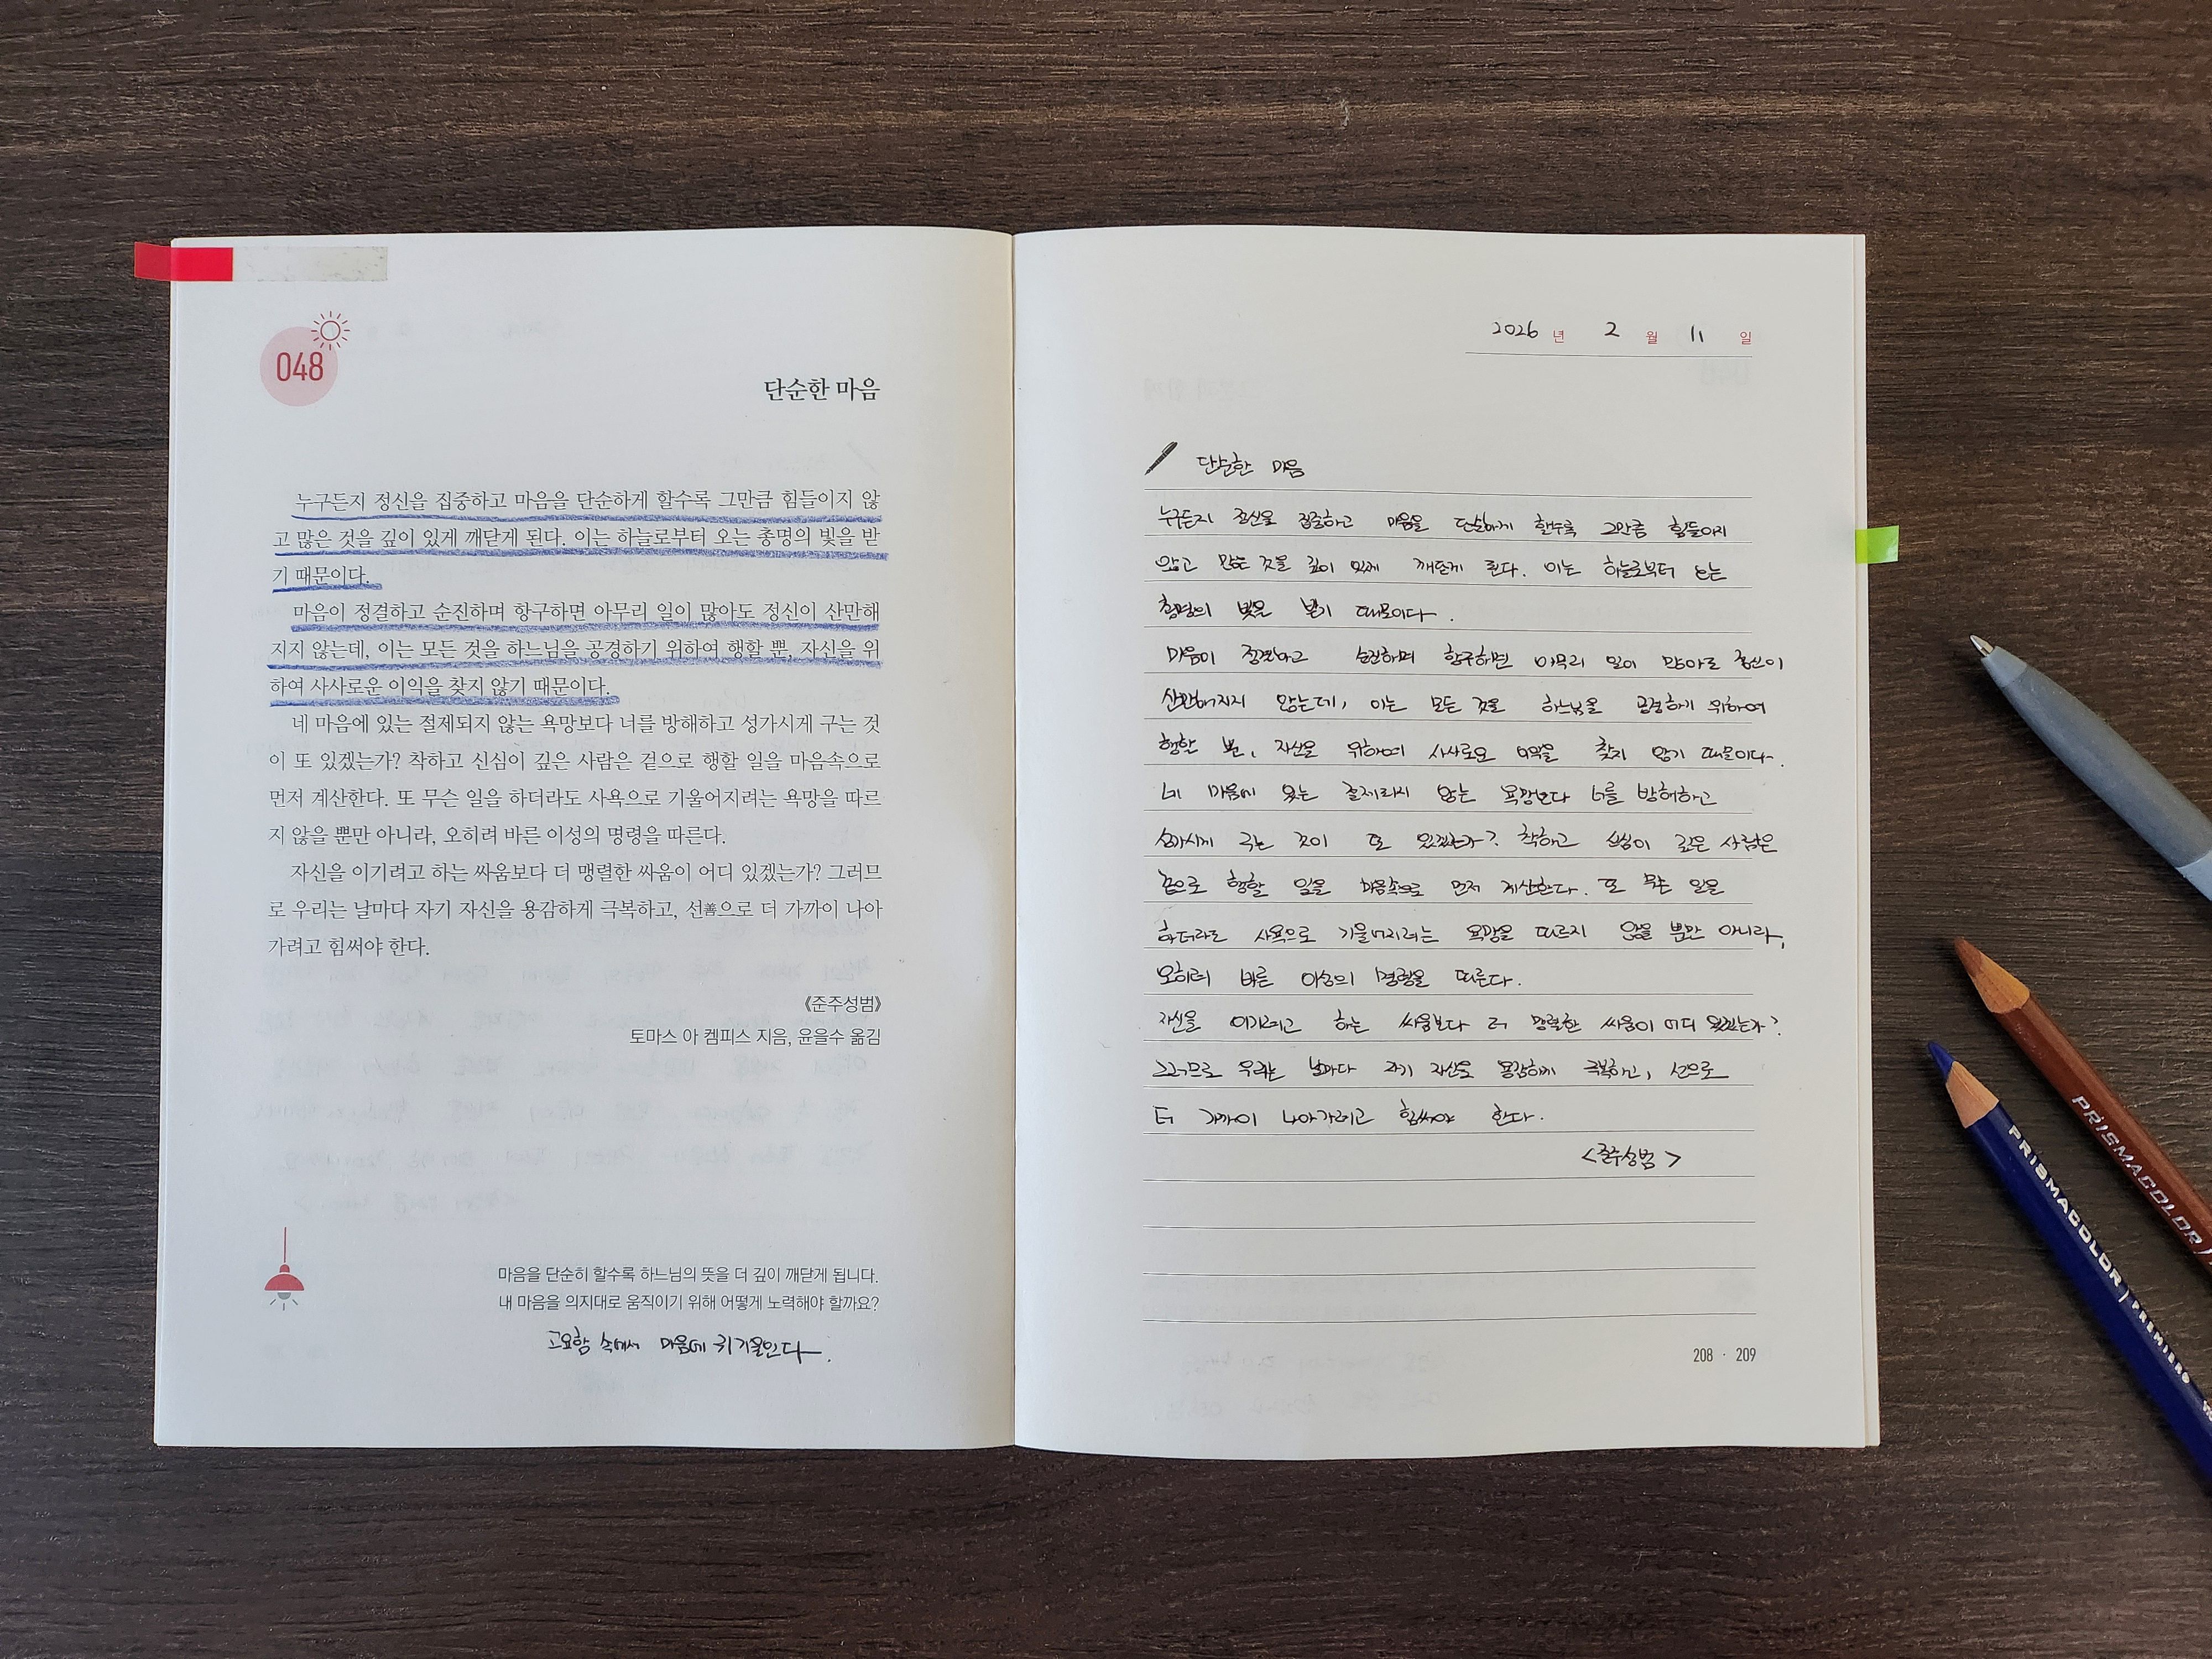 048
단순한 마음
누구든지 정신을 집중하고 마음을 단순하게 할수록 그만큼 힘들이지 않
고 많은 것을 깊이 있게 깨닫게 된다. 이는 하늘로부터 오는 총명의 빛을 받
기 때문이다.
마음이 정결하고 순진하며 항구하면 아무리 일이 많아도 정신이 산만해
지지 않는데, 이는 모든 것을 하느님을 공경하기 위하여 행할 뿐, 자신을 위
하여 사사로운 이익을 찾지 않기 때문이다.
네 마음에 있는 절제되지 않는 욕망보다 너를 방해하고 성가시게 구는 것
이 또 있겠는가? 착하고 신심이 깊은 사람은 겉으로 행할 일을 마음속으로
먼저 계산한다. 또 무슨 일을 하더라도 사욕으로 기울어지려는 욕망을 따르
지 않을 뿐만 아니라, 오히려 바른 이성의 명령을 따른다.
자신을 이기려고 하는 싸움보다 더 맹렬한 싸움이 어디 있겠는가? 그러므
로 우리는 날마다 자기 자신을 용감하게 극복하고, 선善으로 더 가까이 나아
가려고 힘써야 한다.
《준주성범》
토마스 아 켐피스 지음, 윤을수 옮김
마음을 단순히 할수록 하느님의 뜻을 더 깊이 깨닫게 됩니다.
내 마음을 의지대로 움직이기 위해 어떻게 노력해야 할까요?
고요함 속에서 마음에 귀 기울인다.
2026 년 2 월 11 일
단순한 마음
누구든지 정신을 집중하고 마음을 단순하게 할수록 그만큼 힘들이지
않고 많은 것을 깊이 있게 깨닫게 된다. 이는 하늘로부터 오는
총명의 빛을 받기 때문이다.
마음이 정결하고 순진하며 항구하면 아무리 일이 많아도 정신이
산만해지지 않는데, 이는 모든 것을 하느님을 공경하기 위하여
행할 뿐, 자신을 위하여 사사로운 이익을 찾지 않기 때문이다.
네 마음에 있는 절제되지 않는 욕망보다 너를 방해하고
성가시게 구는 것이 또 있겠는가? 착하고 신심이 깊은 사람은
겉으로 행할 일을 마음속으로 먼저 계산한다. 또 무슨 일을
하더라도 사욕으로 기울어지려는 욕망을 따르지 않을 뿐만 아니라,
오히려 바른 이성의 명령을 따른다.
자신을 이기려고 하는 싸움보다 더 맹렬한 싸움이 어디 있겠는가?
그러므로 우리는 날마다 자기 자신을 용감하게 극복하고, 선으로
더 가까이 나아가려고 힘써야 한다.
<준주성범>
208 · 209
PRISMACOLOR
PRISMACOLOR PREMIER